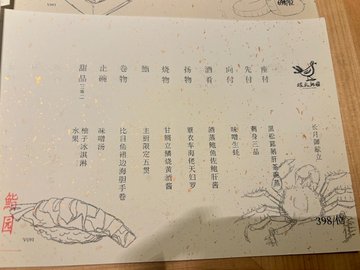 长月御献立
座付 黑松露鹅肝茶碗蒸
先付 刺身三品
向付 味噌生蚝
酒肴 酒蒸鲍鱼佐鲍肝酱
扬物 薑衣车海老天妇罗
烧物 甘鲷立鳞烧黄酒酱
鮨 主厨限定五贯
卷物 比目鱼裙边海胆手卷
止碗 味噌汤
甜品(二选一) 柚子冰淇淋
水果
398/位
鮨园